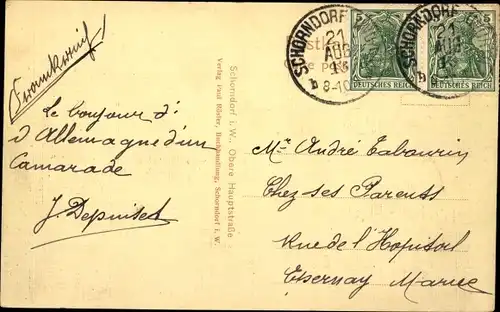 Le bonjour d'
d'Allemagne d'un
Camarade
Schorndorf i. W., Obere Hauptstraße
Verlag Paul Rösler, Buchhandlung, Schorndorf i. W.
SCHORNDORF
21
AUG
b 8-10
5 5
DEUTSCHES REICH
SCHORNDORF
21
AUG
b
5 5
DEUTSCHES REICH
Mr André Tabourin
Chez ses Parents
Rue de l'Hopital
Epernay Marne